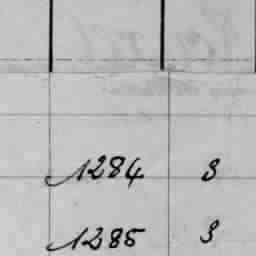 1284 3
1285 3